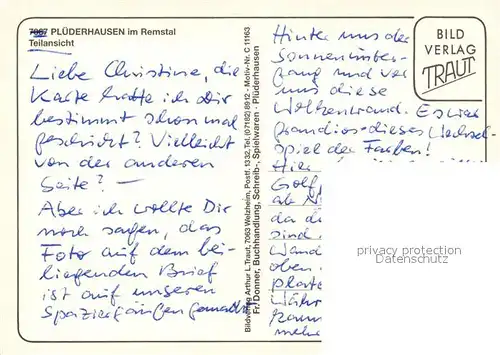 7067 PLÜDERHAUSEN im Remstal
Teilansicht
Liebe Christine, die
Karte hatte ich Dir
bestimmt schon mal
geschickt? Vielleicht
von der anderen
Seite? —
Aber ich wollte Dir
noch sagen, das
Foto auf dem bei-
liegenden Brief
ist auf unseren
Spaziergängen gemacht
Bildverlag Arthur L. Traut, 7063 Welzheim, Postf. 1332, Tel. (07182) 8912 - Motiv-Nr. C 11163
Fr. Donner, Buchhandlung, Schreib-, Spielwaren · Plüderhausen
Hinter uns der
Sonnenunter-
gang und vor
uns diese
Wolkenwand. Es war
grandios dieses Wechsel-
spiel der Farben!
Hier
Golf
als
da d
sind
Wand
oben.
plat
Währ
kann
mehr
BILD
VERLAG
TRAUT
privacy protection
Datenschutz